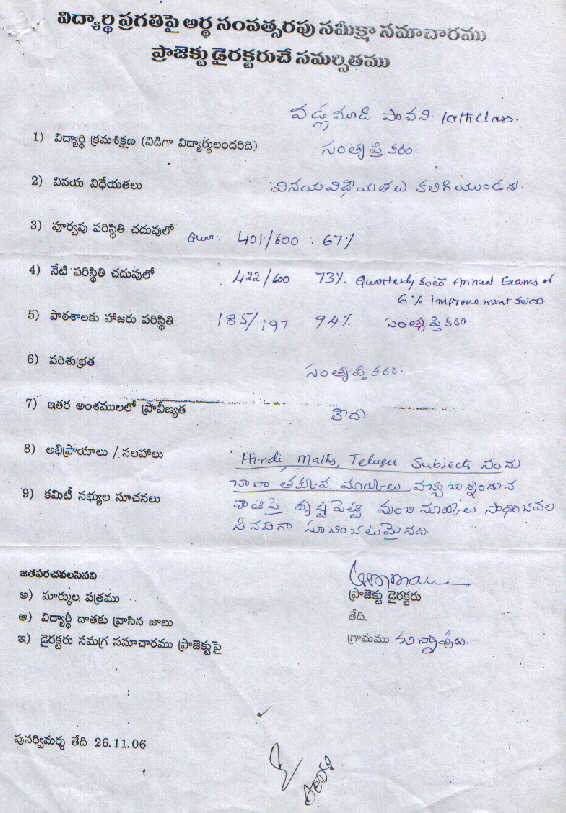 విద్యార్థి ప్రగతిపై అర్థ సంవత్సరపు సమీక్షా సమాచారము
ప్రాజెక్టు డైరక్టరుచే సమర్పితము
వడ్లమూడి పావని 10th class.
1) విద్యార్థి క్రమశిక్షణ (విడిగా విద్యార్థులందరిది) సంతృప్తికరం
2) వినయ విధేయతలు వినయవిధేయతలు కలిగియుండుట
3) పూర్వపు పరిస్థితి చదువులో 401/600 : 67%
4) నేటి పరిస్థితి చదువులో 422/60 73% Quarterly కంటే Annual Exams of
6% Improvement కలదు
5) పాఠశాలకు హాజరు పరిస్థితి 185/197 94% సంతృప్తికరం
6) పరిశుభ్రత సంతృప్తికరం.
7) ఇతర అంశములలో ప్రావీణ్యత
8) అభిప్రాయాలు / సలహాలు Hindi, Maths, Telugu Subjects నందు
చాలా తక్కువ మార్కులు
9) కమిటీ సభ్యుల సూచనలు
జతపరచవలసినవి
అ) మార్కుల పత్రము ప్రాజెక్టు డైరక్టరు
ఆ) విద్యార్థి దాతకు వ్రాసిన జాబు తేది.
ఇ) డైరక్టరు సమగ్ర సమాచారము ప్రాజెక్టుపై గ్రామము
పునర్విమర్శ తేది 26.11.06